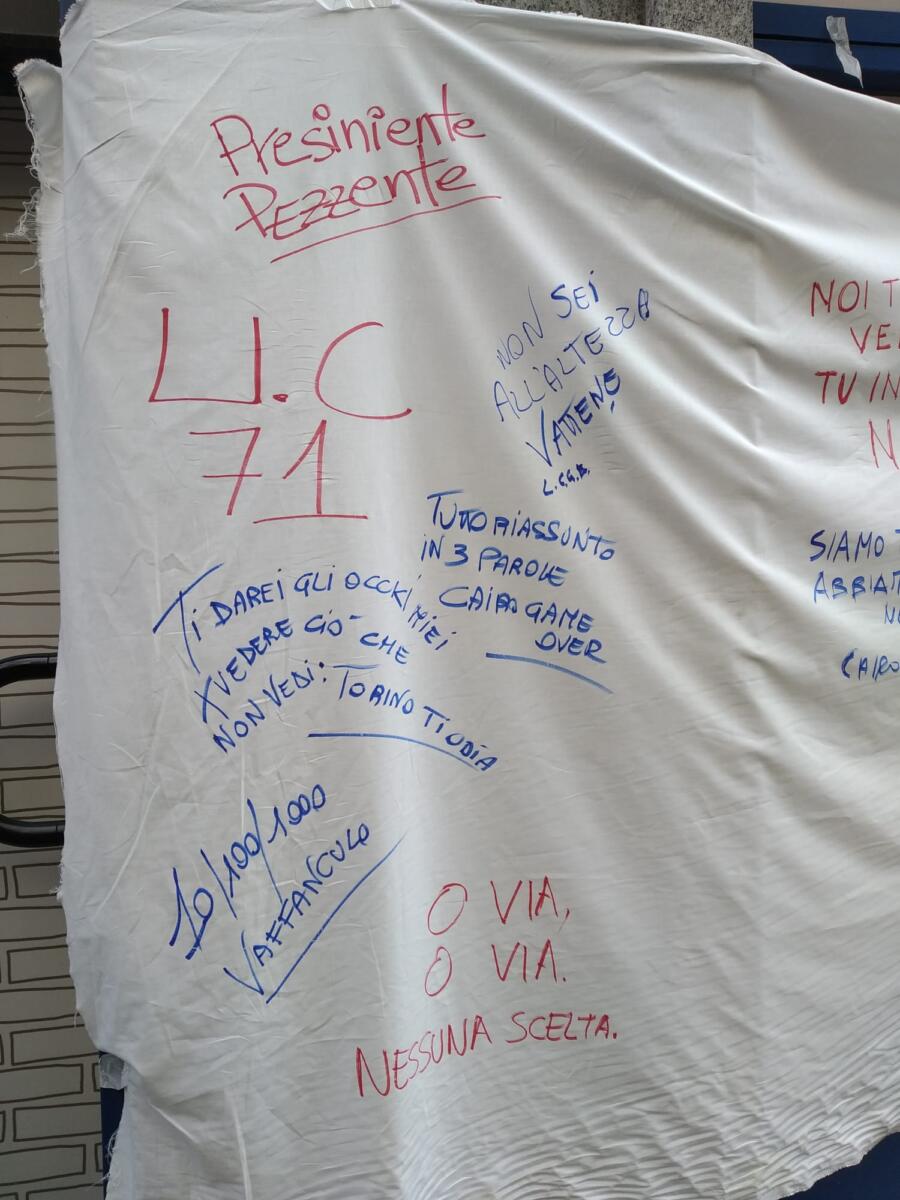 Presiniente
Pezzente
U.C
71
NON SEI
ALL'ALTEZZA
VATTENE
L.C.G.B.
TUTTO RIASSUNTO
IN 3 PAROLE
CAIRO GAME
OVER
TI DAREI GLI OCCHI MIEI
X VEDERE CIÒ CHE
NON VEDI: TORINO TI ODIA
10/100/1000
VAFFANCULO
O VIA,
O VIA.
NESSUNA SCELTA.
NOI T
VE
TU IN
N
SIAMO
ABBIA
NO
CAIRO